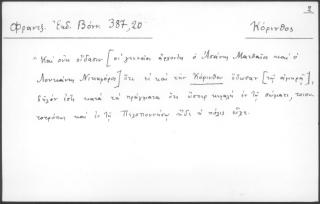 2
Φραντζ. Ἐκδ. Βόνν. 387,20
Κόρινθος
"Καὶ οὐκ οἴδασιν [οἱ γενναῖοι ἄρχοντες ὁ Ἀσάνης Ματθαῖος καὶ ὁ
Νικηφόρος] ὅτι εἰ καὶ τὴν Κόρινθον ἔδωσαν [τῷ ἀμηρᾷ],
δῆλόν ἐστι κατὰ τὰ πράγματα ὅτι ὥσπερ κεφαλὴ ἐν τῷ σώματι, τοιου-
τοτρόπως καὶ ἐν τῇ Πελοποννήσῳ ὧδε ἡ πόλις